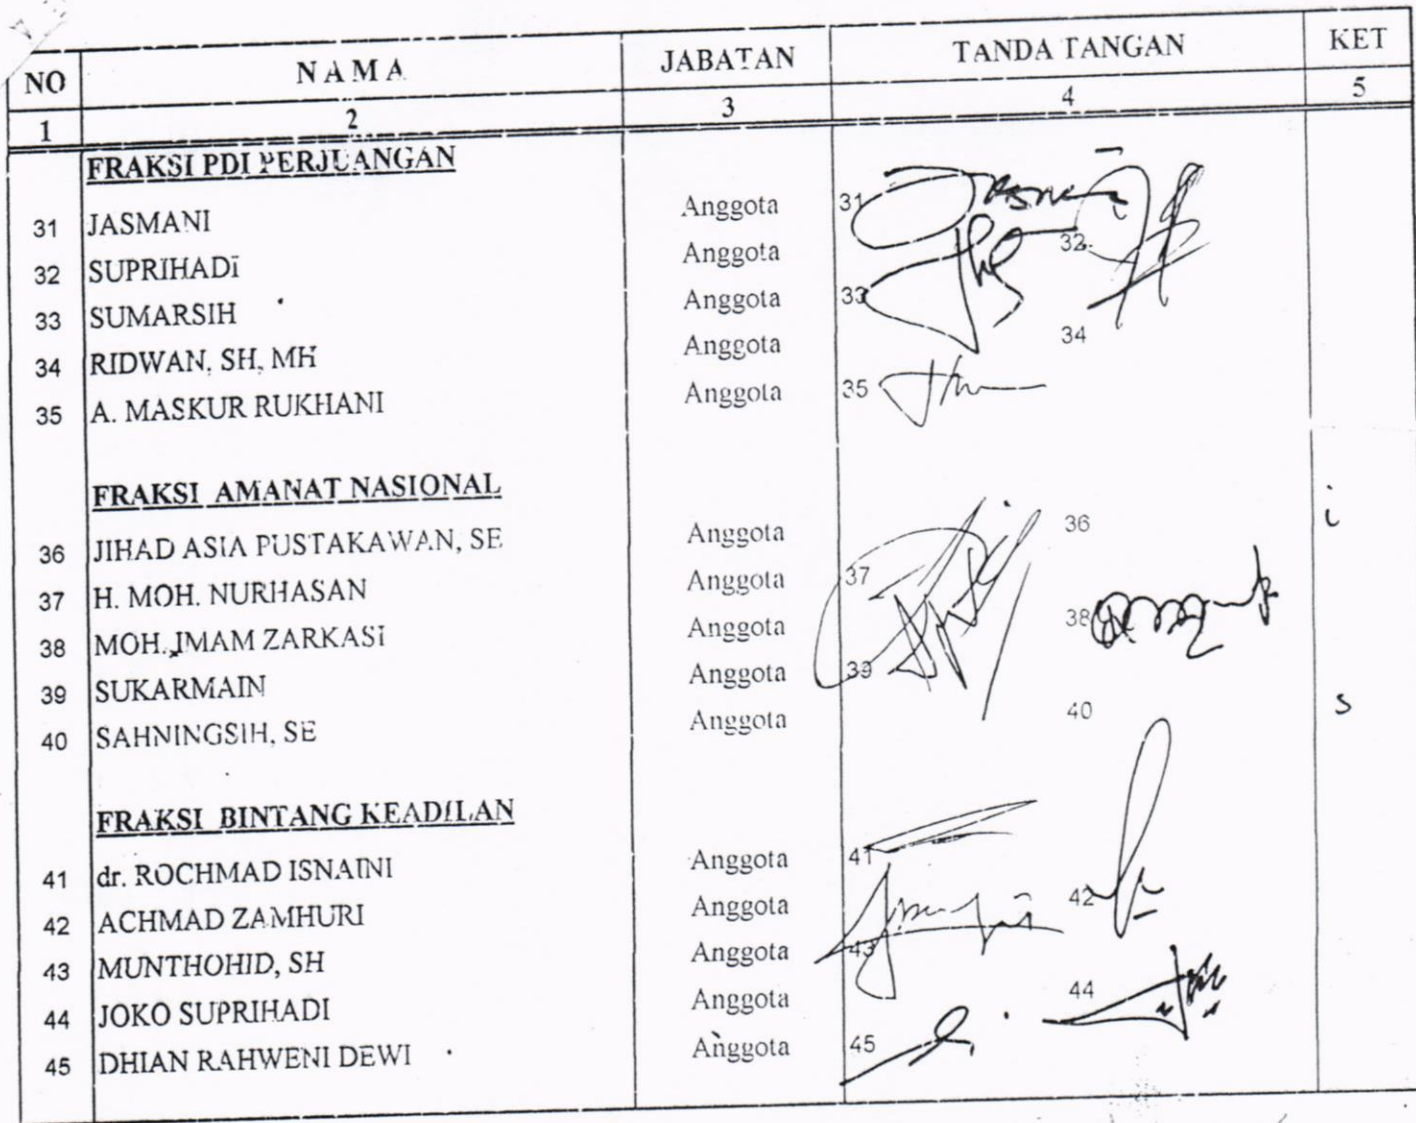 NO NAMA JABATAN TANDA TANGAN KET
1 2 3 4 5
FRAKSI PDI PERJUANGAN
31 JASMANI Anggota 31
32 SUPRIHADI Anggota 32
33 SUMARSIH Anggota 33
34 RIDWAN, SH, MH Anggota 34
35 A. MASKUR RUKHANI Anggota 35
FRAKSI AMANAT NASIONAL
36 JIHAD ASIA PUSTAKAWAN, SE Anggota 36 i
37 H. MOH. NURHASAN Anggota 37
38 MOH. IMAM ZARKASI Anggota 38
39 SUKARMAIN Anggota 39
40 SAHNINGSIH, SE Anggota 40 s
FRAKSI BINTANG KEADILAN
41 dr. ROCHMAD ISNAINI Anggota 41
42 ACHMAD ZAMHURI Anggota 42
43 MUNTHOHID, SH Anggota 43
44 JOKO SUPRIHADI Anggota 44
45 DHIAN RAHWENI DEWI Anggota 45